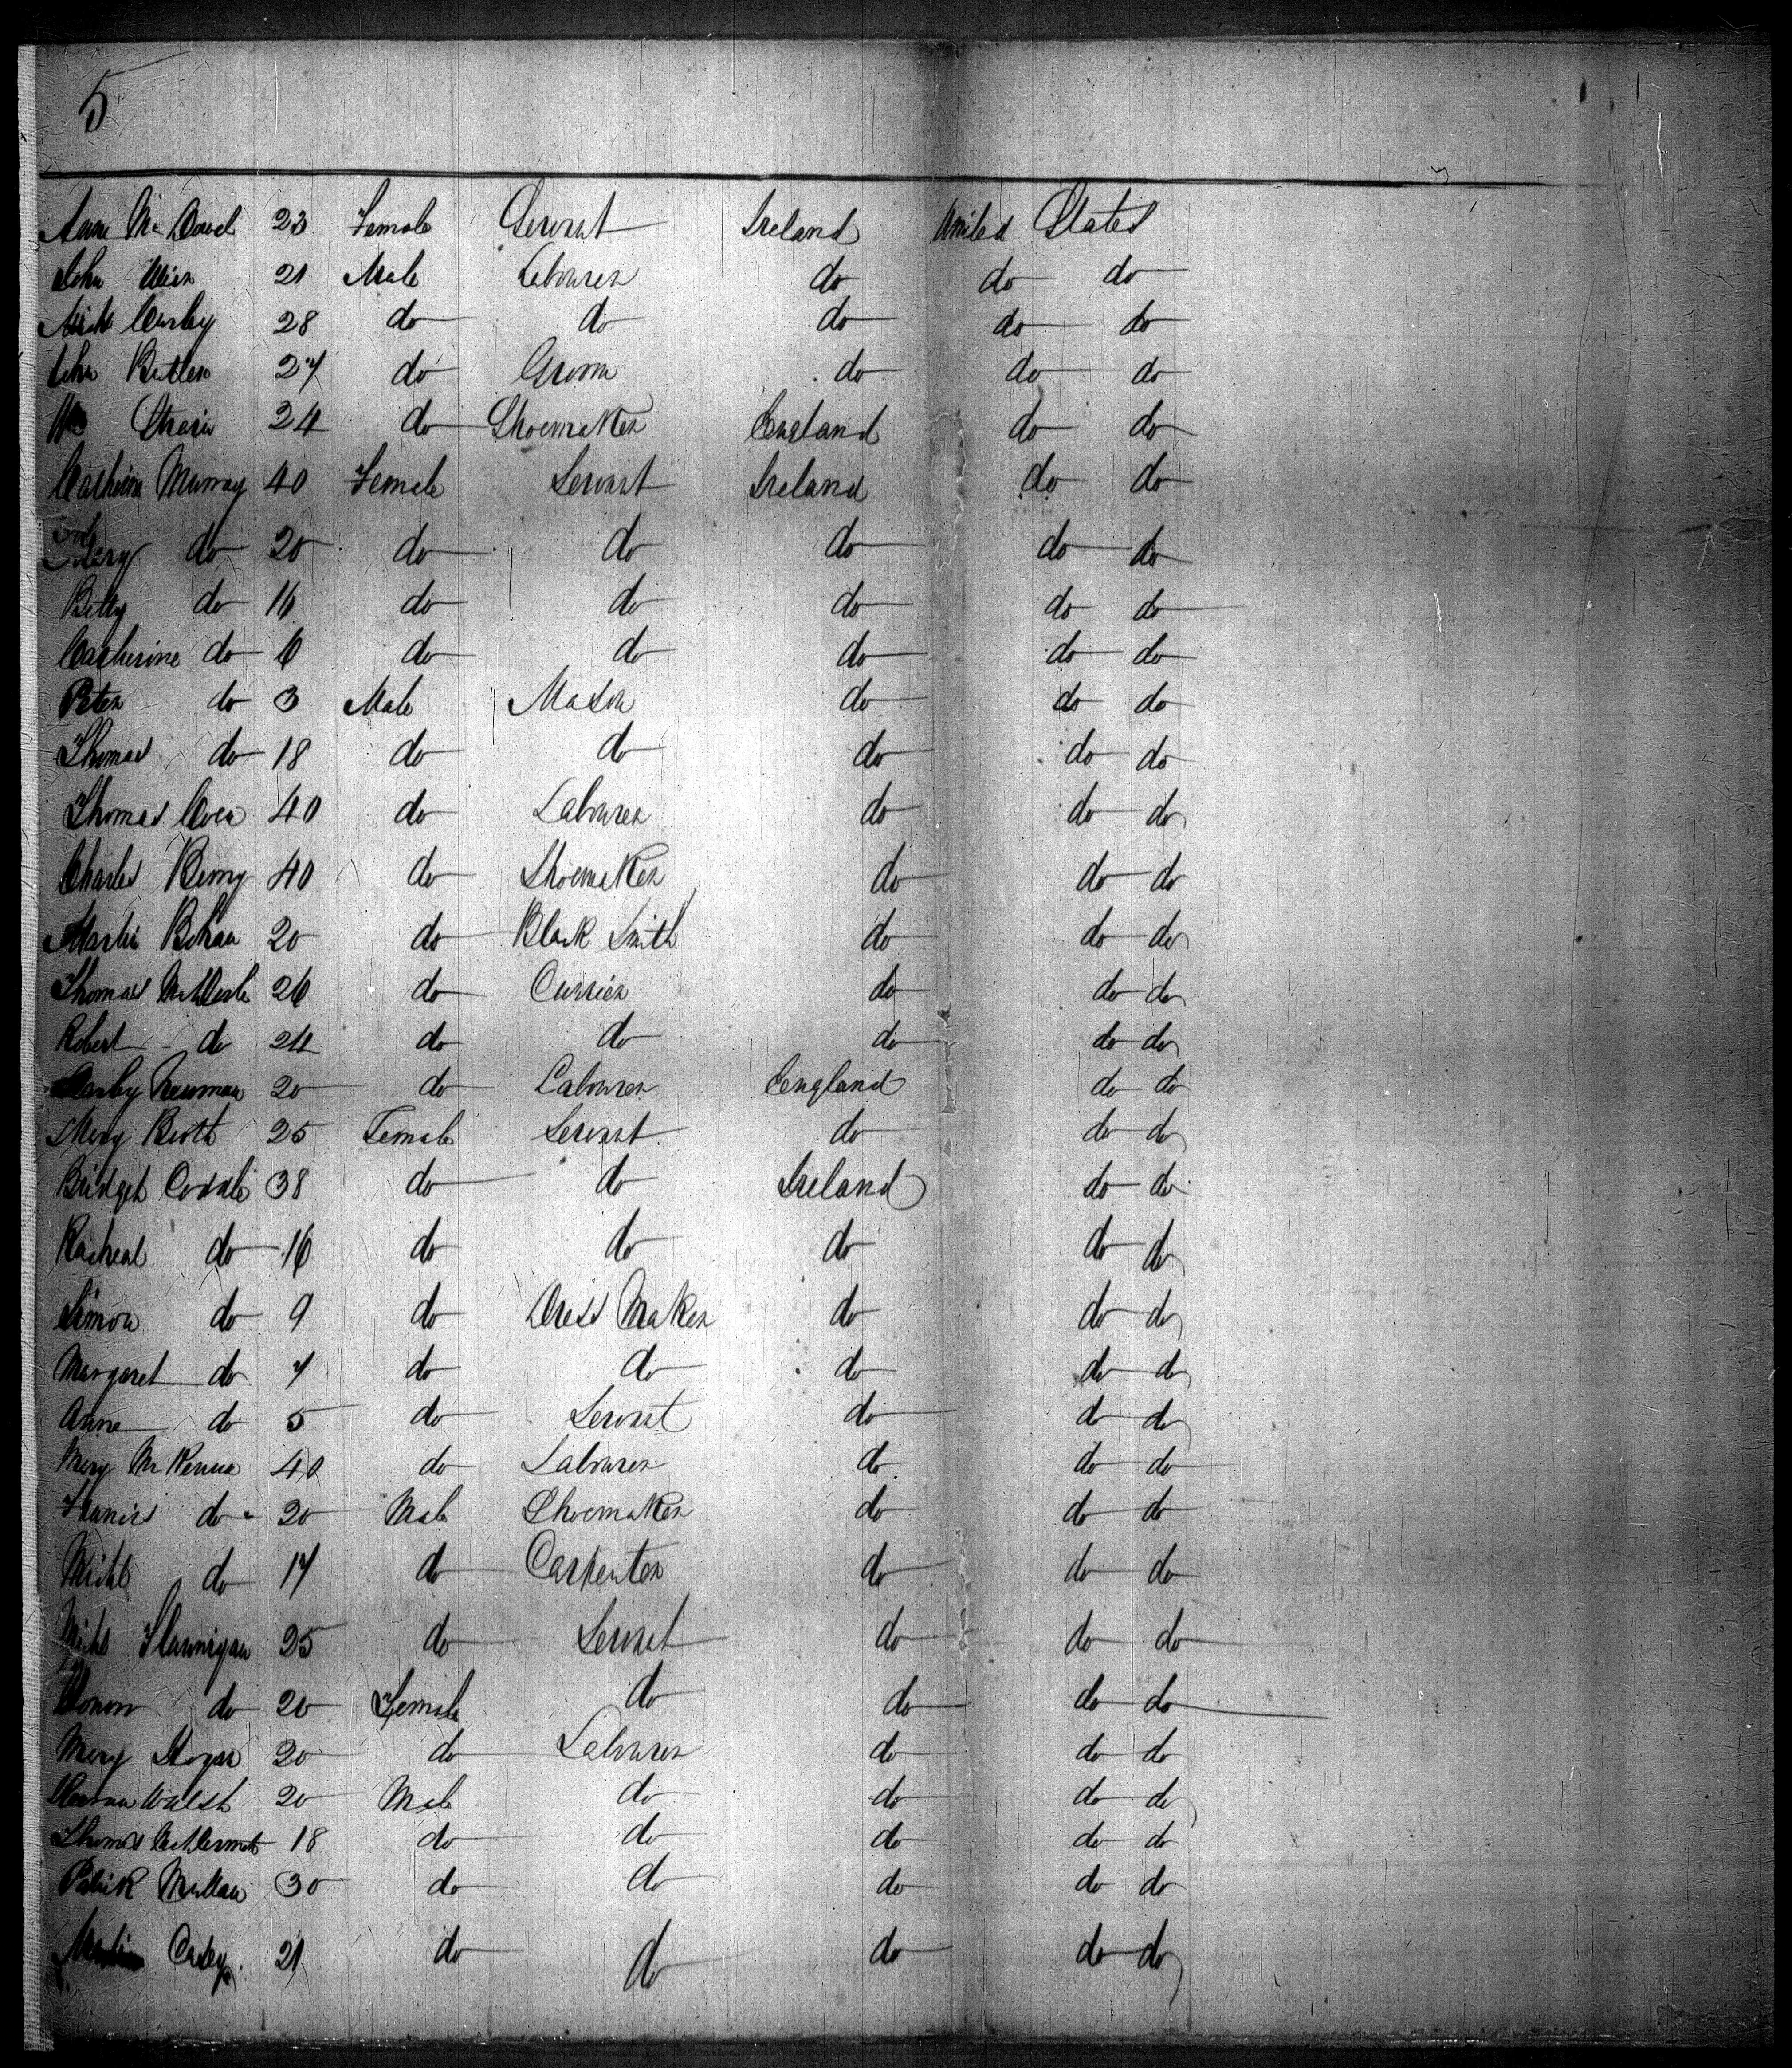 5
Anne Mc Dowel 23 Female Servant Ireland United States
John Weir 21 Male Labourer do do do
Mich Curley 28 do do do do do
John Butler 27 do Groom do do do
Wm 24 do Shoemaker England do do
Catherine Murray 40 Female Servant Ireland do do
Mary do 20 do do do do do
Betty do 16 do do do do do
Catherine do 6 do do do do do
Peter do 3 Male Mason do do do
Thomas do 18 do do do do do
Thomas 40 do Labourer do do do
Charles Berry 40 do Shoemaker do do do
Martin Behan 20 do Black Smith do do do
Thomas 26 do Currier do do do
Robert do 24 do do do do do
Darby Newman 20 do Labourer England do do
Mary 25 Female Servant do do do
Bridget 38 do do Ireland do do
Racheal do 16 do do do do do
Simon do 9 do Dress Maker do do do
Margaret do 7 do do do do do
Anne do 5 do Servant do do do
Mary McKenna 40 do Labourer do do do
Francis do 20 Male Shoemaker do do do
Michl do 17 do Carpenter do do do
Michl Flannigan 25 do Servant do do do
Honor do 20 Female do do do do
Mary Hogan 20 do Labourer do do do
Walsh 20 Male do do do do
Thomas McDermott 18 do do do do do
Patrick Mullan 30 do do do do do
Martin Casey 21 do do do do do